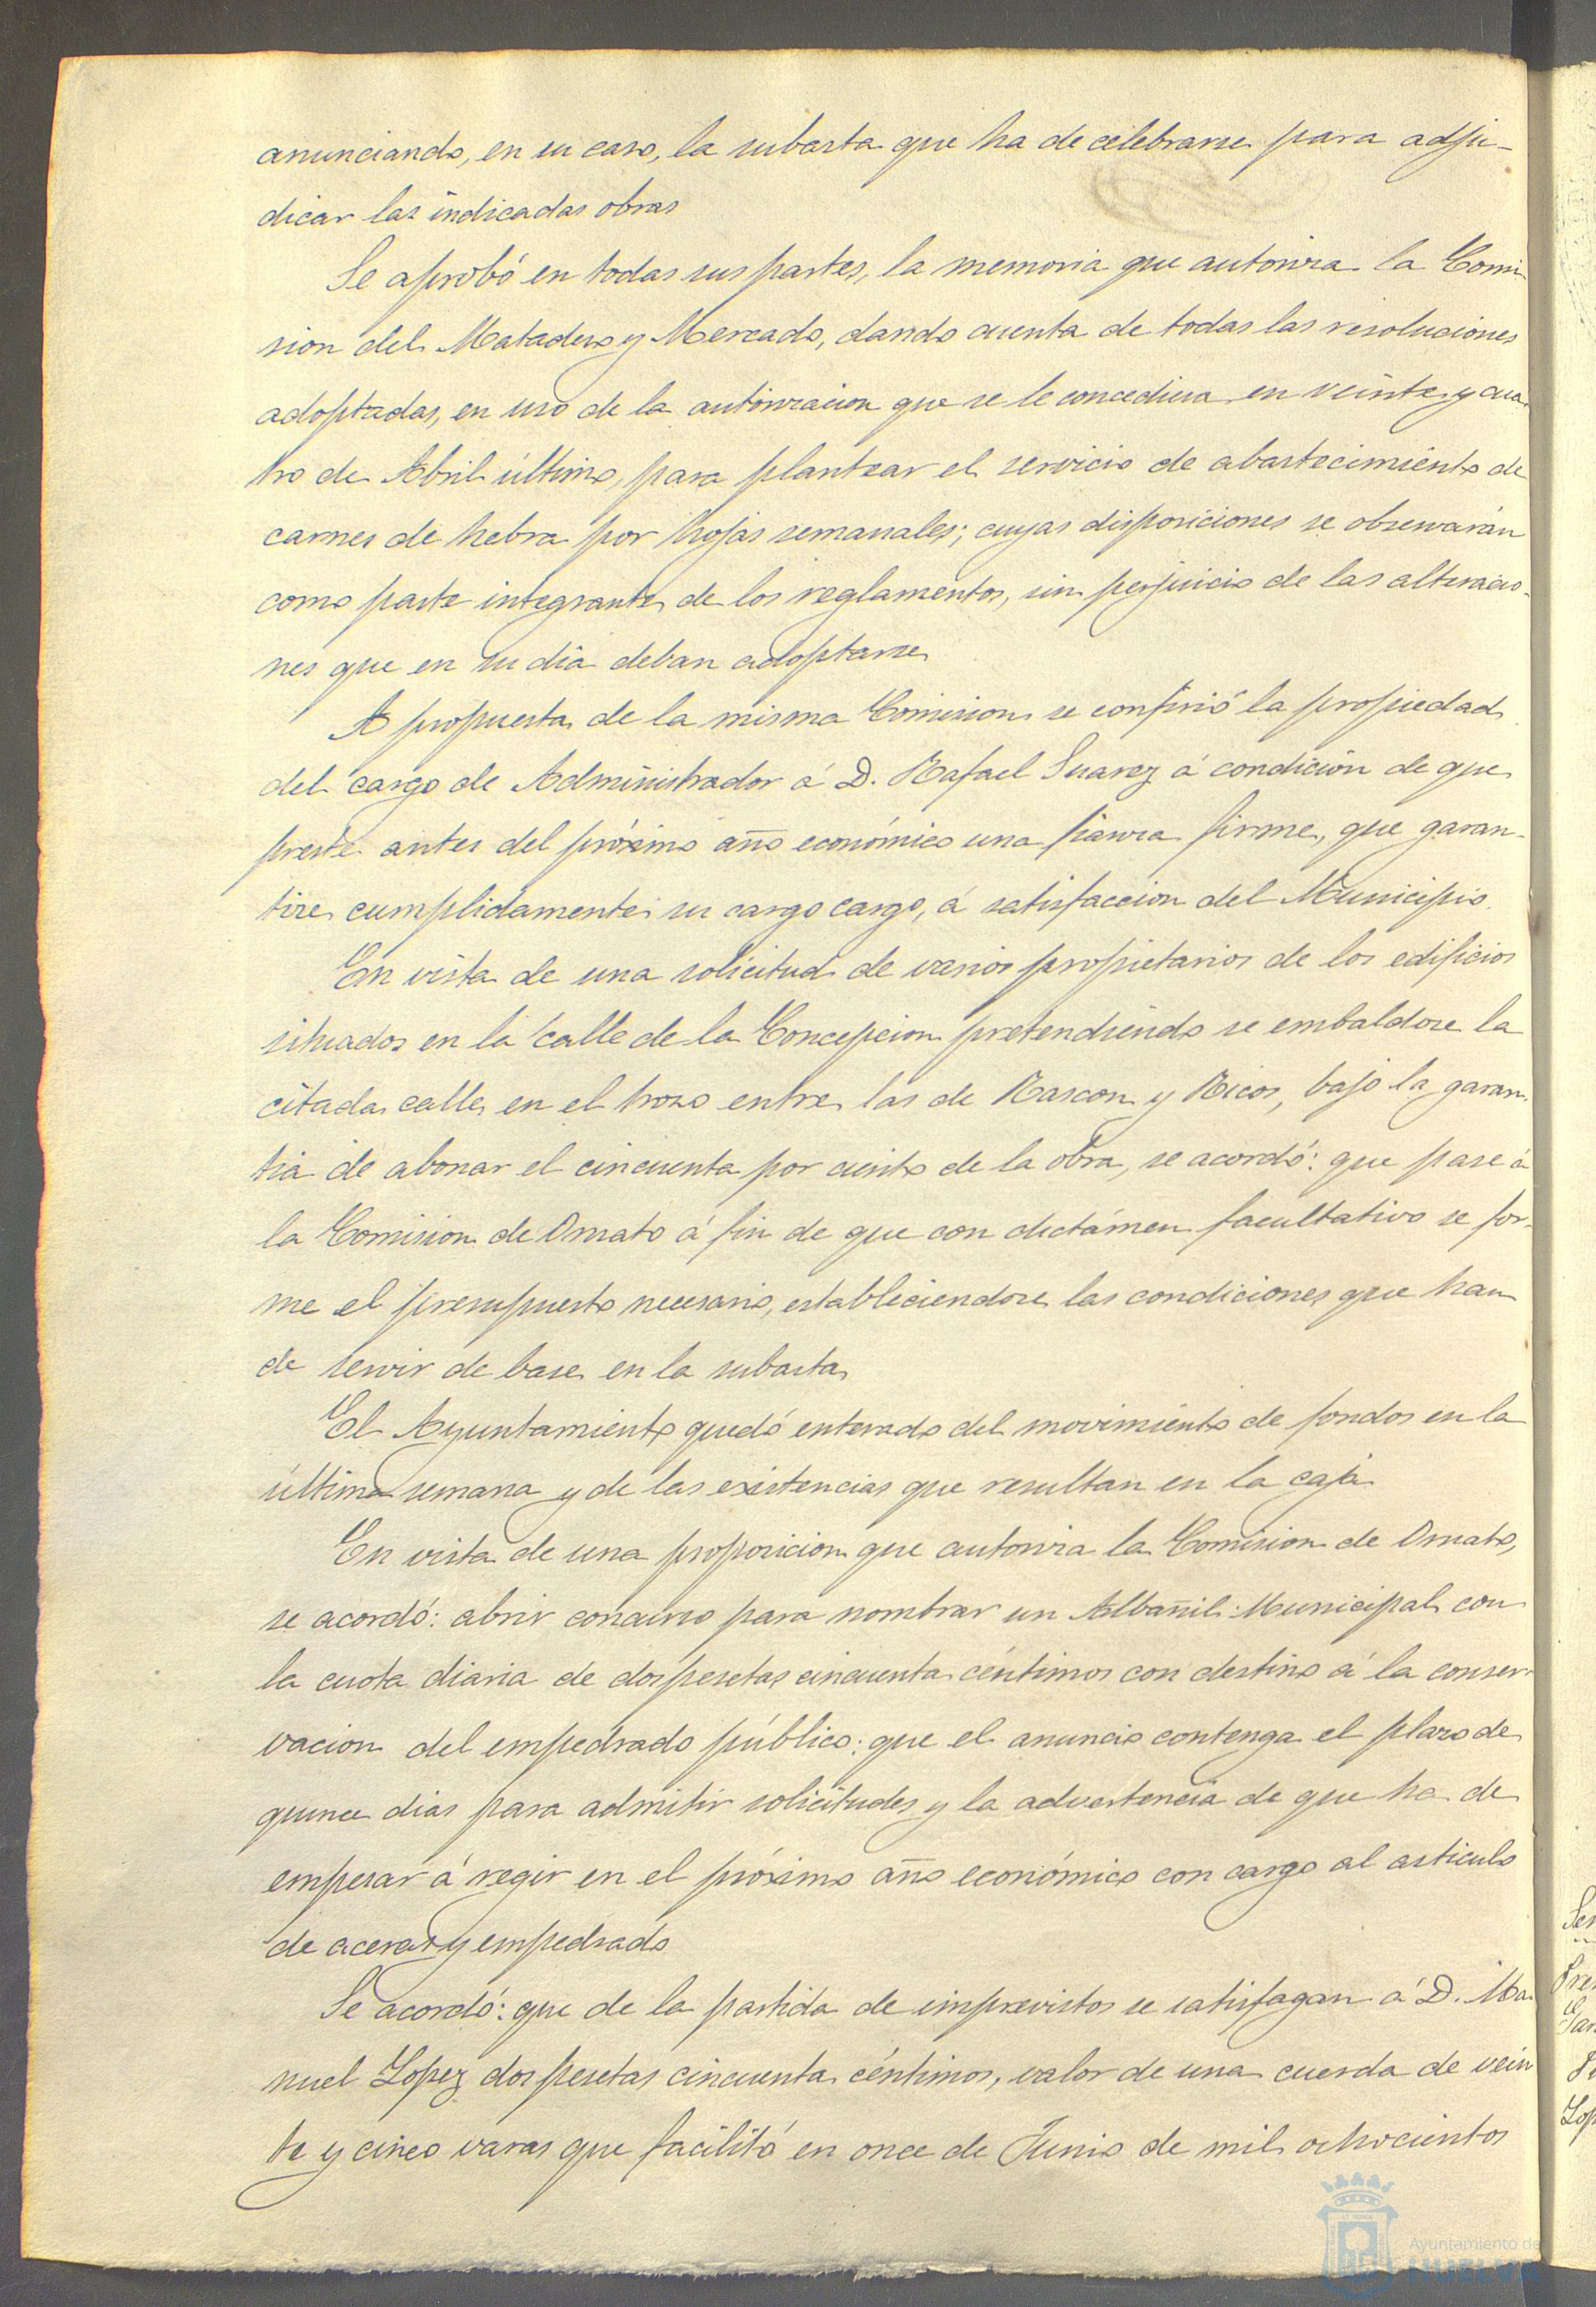 anunciando, en su caso, la subasta que ha de celebrarse para adju-
dicar las indicadas obras
Se aprobó en todas sus partes, la memoria que autoriza la Comi-
sion del Matadero y Mercado, dando cuenta de todas las resoluciones
adoptadas, en uso de la autorizacion que se le concediera en veinte y cua-
tro de Abril último, para plantear el servicio de abastecimiento de
carnes de hebra por hojas semanales; cuyas disposiciones se observarán
como parte integrante de los reglamentos, sin perjuicio de las alteracio-
nes que en su dia deban adoptarse
A propuesta de la misma Comision se confirió la propiedad
del cargo de Administrador á D. Rafael Suarez á condicion de que
preste antes del próximo año económico una fianza firme, que garan-
tice cumplidamente su cargo cargo, á satisfaccion del Municipio.
En vista de una solicitud de varios propietarios de los edificios
situados en la calle de la Concepcion pretendiendo se embaldose la
citada calle en el trozo entre las de Rascon y Ricos, bajo la garan-
tia de abonar el cincuenta por ciento de la obra, se acordó: que pase á
la Comision de Ornato á fin de que con dictámen facultativo se for-
me el presupuesto necesario, estableciendose las condiciones que han
de servir de base en la subasta
El Ayuntamiento quedó enterado del movimiento de fondos en la
última semana y de las existencias que resultan en la caja
En vista de una proposicion que autoriza la Comision de Ornato,
se acordó: abrir concurso para nombrar un Albañil Municipal con
la cuota diaria de dos pesetas cincuenta céntimos con destino á la conser-
vacion del empedrado público: que el anuncio contenga el plazo de
quince dias para admitir solicitudes y la advertencia de que ha de
empezar á regir en el próximo año económico con cargo al articulo
de aceras y empedrado
Se acordó: que de la partida de imprevistos se satisfagan á D. Ma-
nuel Lopez dos pesetas cincuenta céntimos, valor de una cuerda de vein-
te y cinco varas que facilitó en once de Junio de mil ochocientos
Ayuntamiento de
HUELVA